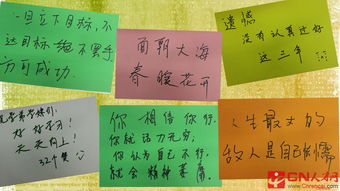 一旦立下目标,不
达目标绝不罢手
方可成功.
面朝大海
春暖花开
遗憾
没有认真过好
这三年
好好学习!
天天向上!
你相信你行,
你就活力无穷,
你认为自己不行,
就会精神萎靡.
人生最大的
敌人是自己
CN人才网
www.Cnrencai.com